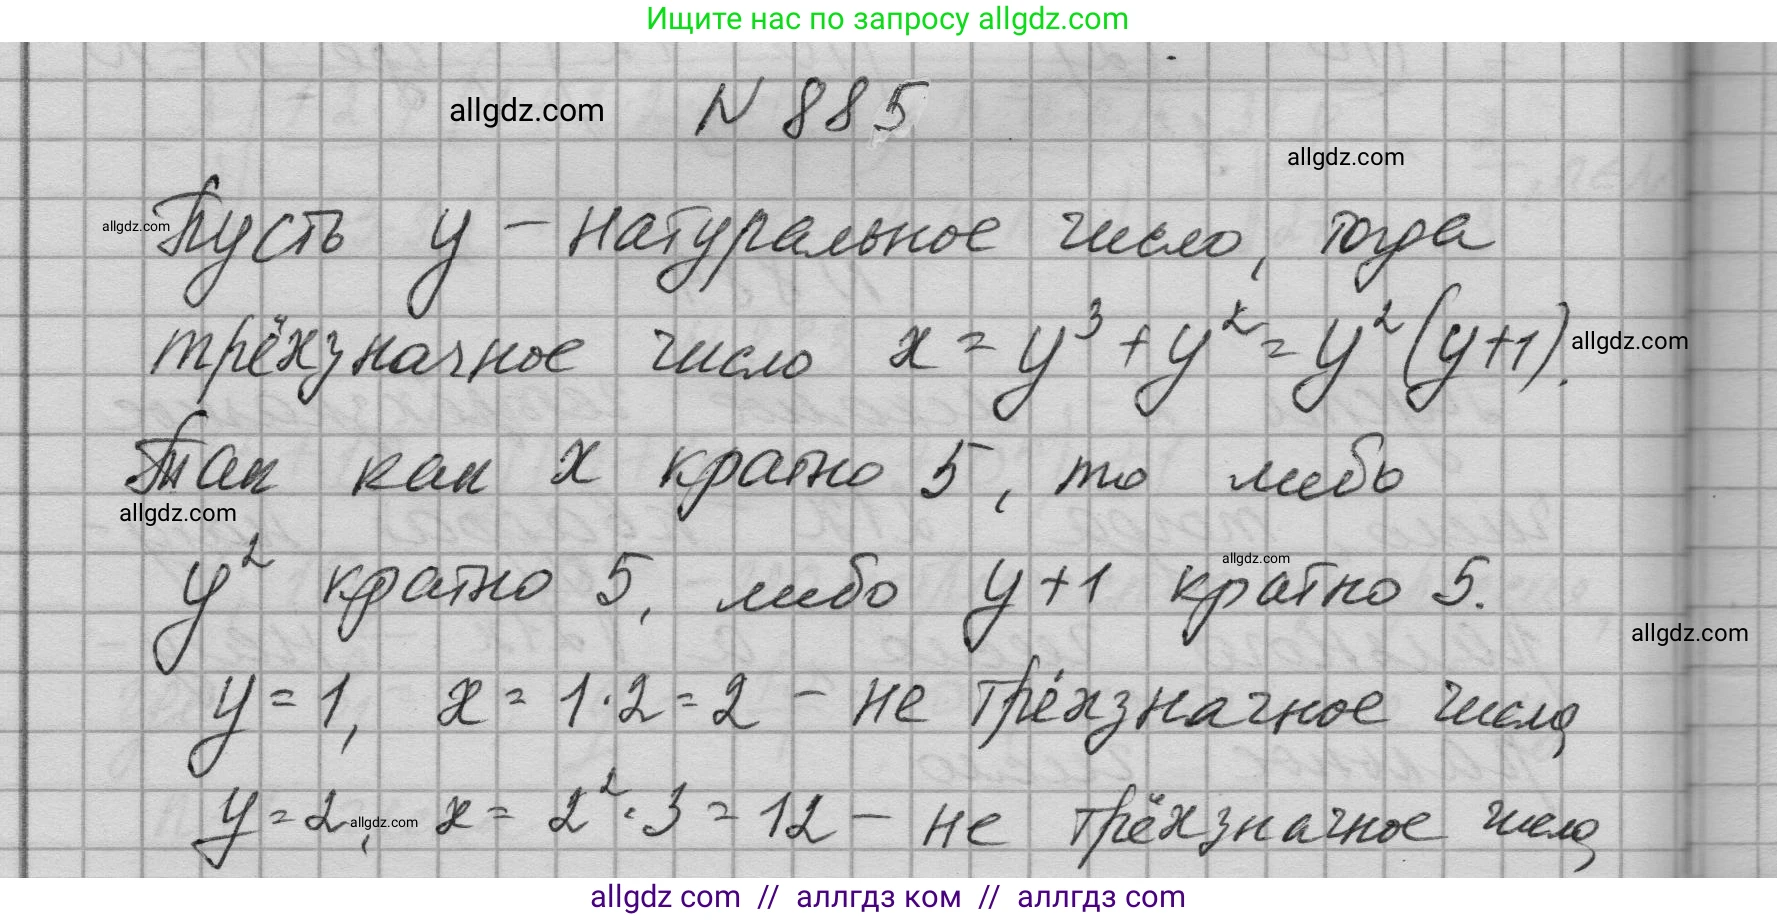 Ищите нас по запросу allgdz.com
allgdz.com N 885
allgdz.com
allgdz.com Пусть y – натуральное число, тогда
трёхзначное число x = y³ + y² = y² (y+1). allgdz.com
Так как x кратно 5, то либо
allgdz.com
y² кратно 5, либо y+1 кратно 5.
allgdz.com
allgdz.com
y = 1, x = 1 · 2 = 2 – не трёхзначное число,
y = 2, allgdz.com x = 2² · 3 = 12 – не трёхзначное число,
allgdz com // аллгдз ком // аллгдз com